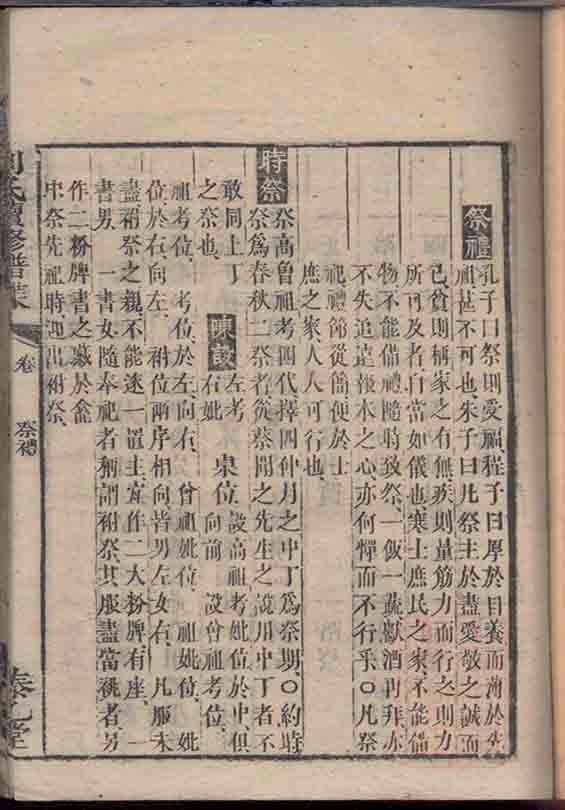 祭禮 孔子曰祭則受福程子曰厚於自養而薄於先
祖甚不可也朱子曰凡祭主於盡愛敬之誠而
已貧則稱家之有無疾則量筋力而行之則力
所可及者自當如儀也寒士庶民之家不能備
物不能備禮隨時致祭一飯一蔬獻酒再拜亦
不失追遠報本之心亦何憚而不行乎○凡祭
祀禮節從簡便於士
庶之家人人可行也
時祭 祭高曾祖考四代擇四仲月之中丁為祭期○約時
祭為春秋二祭者從蔡聞之先生之說用中丁者不
敢同上丁
之祭也
陳設 左考
右妣
桌位 設高祖考妣位於中俱
向前 設曾祖考位
祖考位 考位於左向右 曾祖妣位 祖妣位 妣
位於右向左 祔位兩序相向皆男左女右 凡服未
盡祔祭之親不能逐一置主宜作二大粉牌有座一
書男一書女隨奉祀者稱謂祔祭其服盡當祧者另
作二粉牌書之藏於龕
中祭先祖時迎出祔祭
氏續修譜
卷
祭禮
堂